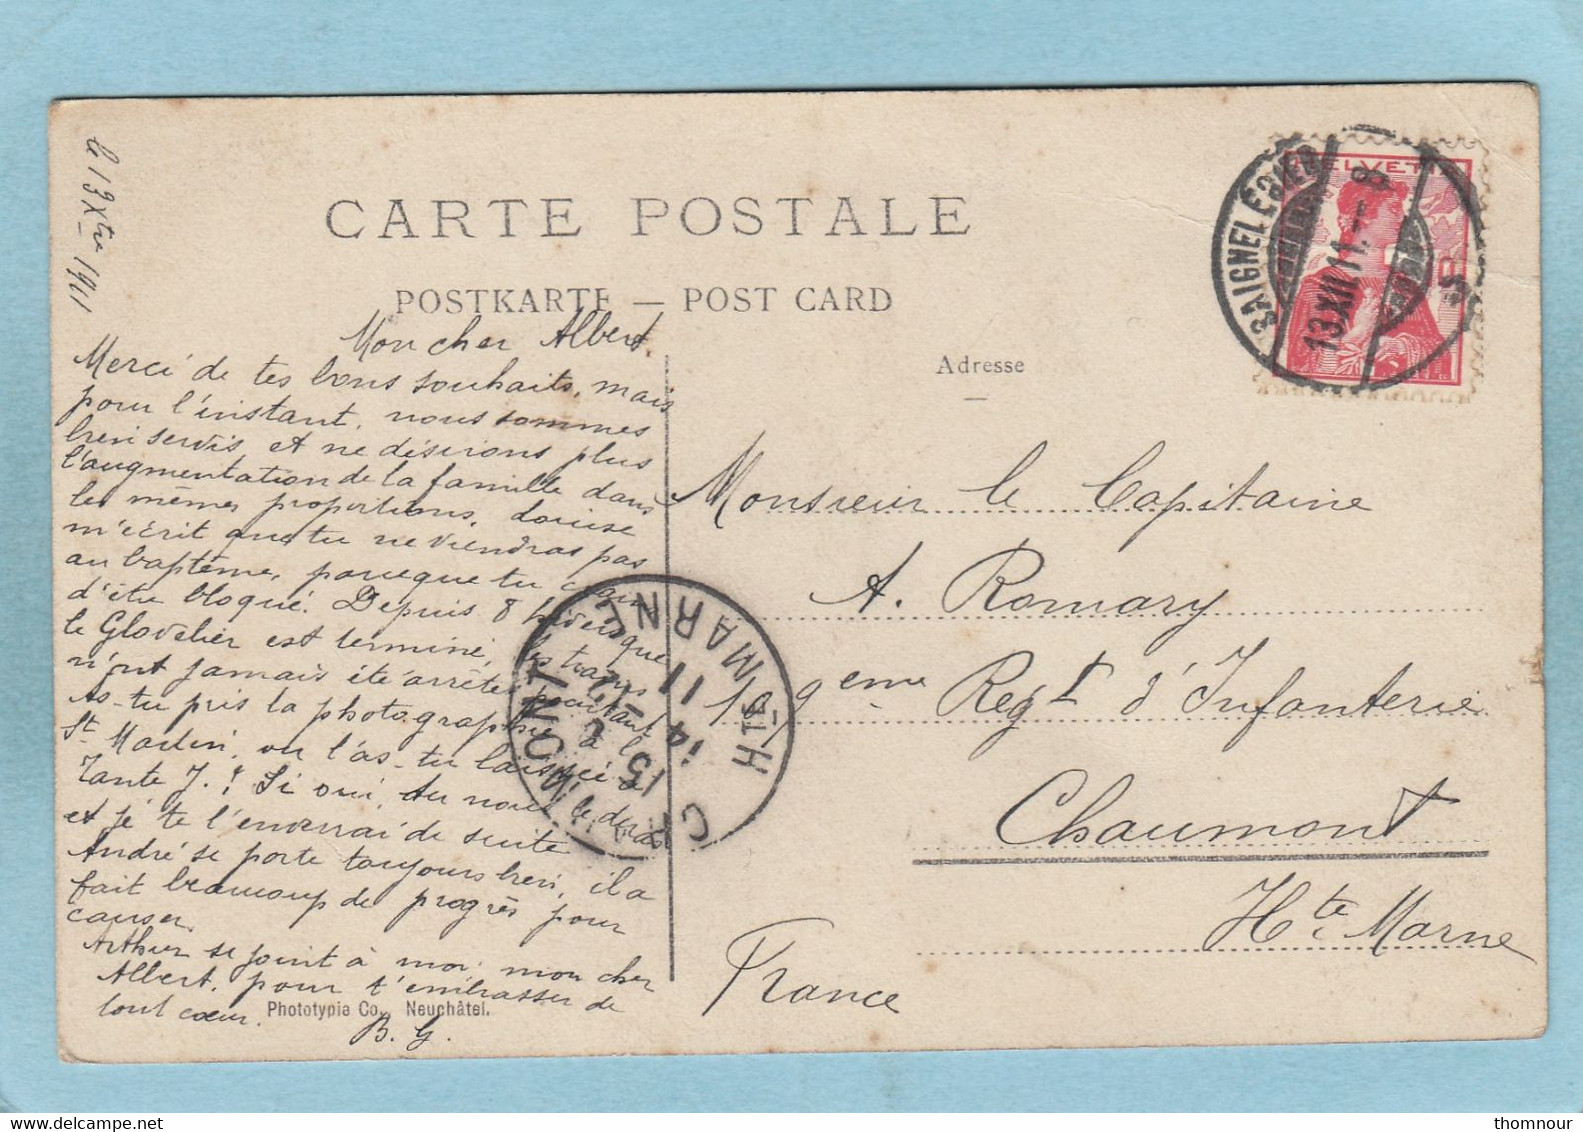 le 13 Xbre 1911
CARTE POSTALE
POSTKARTE — POST CARD
Adresse
HELVETIA
SAIGNELÉGIER
13.XII.11.-8
Mon cher Albert,
Merci de tes bons souhaits, mais
pour l'instant, nous sommes
bien servis et ne désirons plus
l'augmentation de la famille dans
les mêmes proportions. Louise
m'écrit que tu ne viendras pas
au baptême, parceque tu crains
d'être bloqué. Depuis 8 hivers que
le Glovelier est terminé, les trains
n'ont jamais été arrêtés pourtant
As-tu pris la photographie à la
St Martin, ou l'as-tu laissée à
Tante J.? Si oui, tu nous le diras
et je te l'enverrai de suite
André se porte toujours bien, il a
fait beaucoup de progrès pour
causer.
Arthur se joint à moi, mon cher
Albert, pour t'embrasser de
tout cœur.
B. G.
Phototypie Co., Neuchâtel.
CHAUMONT
15
14 11
HTE MARNE
Monsieur le Capitaine
A. Romary
109eme Regt d'Infanterie
Chaumont
Hte Marne
France
thomnour